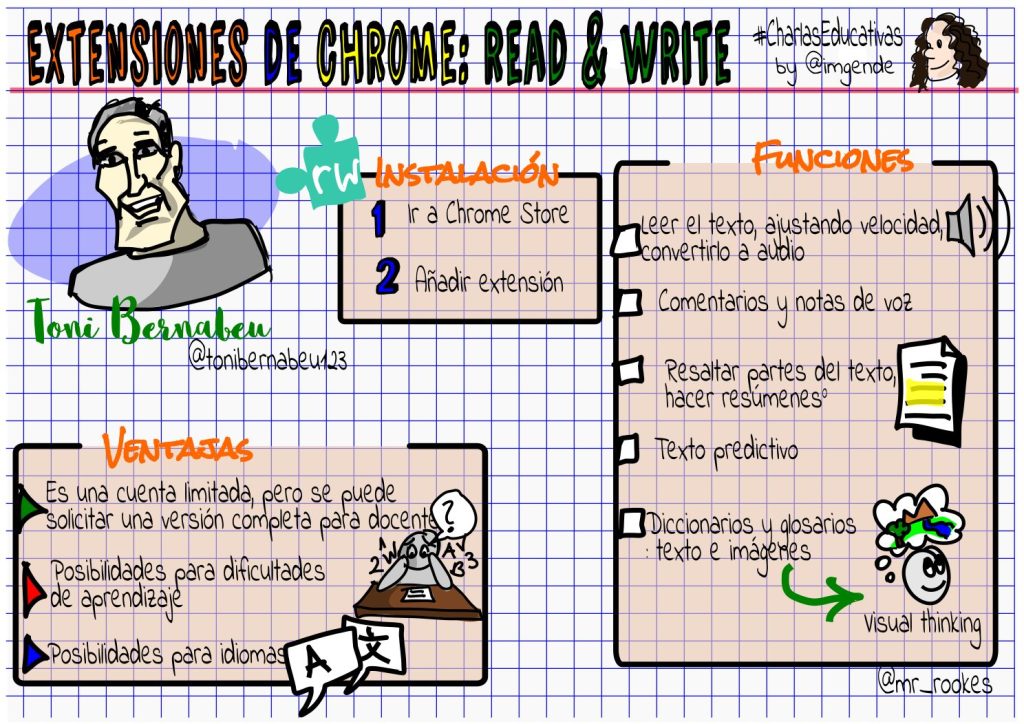 EXTENSIONES DE CHROME: READ & WRITE
#CharlasEducativas
by @imgende
Toni Bernabeu
@tonibernabeu123
rw
INSTALACIÓN
1 Ir a Chrome Store
2 Añadir extensión
FUNCIONES
Leer el texto, ajustando velocidad,
convertirlo a audio
Comentarios y notas de voz
Resaltar partes del texto,
hacer resúmenesº
Texto predictivo
Diccionarios y glosarios
: texto e imágenes
Visual thinking
VENTAJAS
Es una cuenta limitada, pero se puede
solicitar una versión completa para docente
?
2 1 W A 4 B 3
Posibilidades para dificultades
de aprendizaje
Posibilidades para idiomas
A 文
@mr_rookes